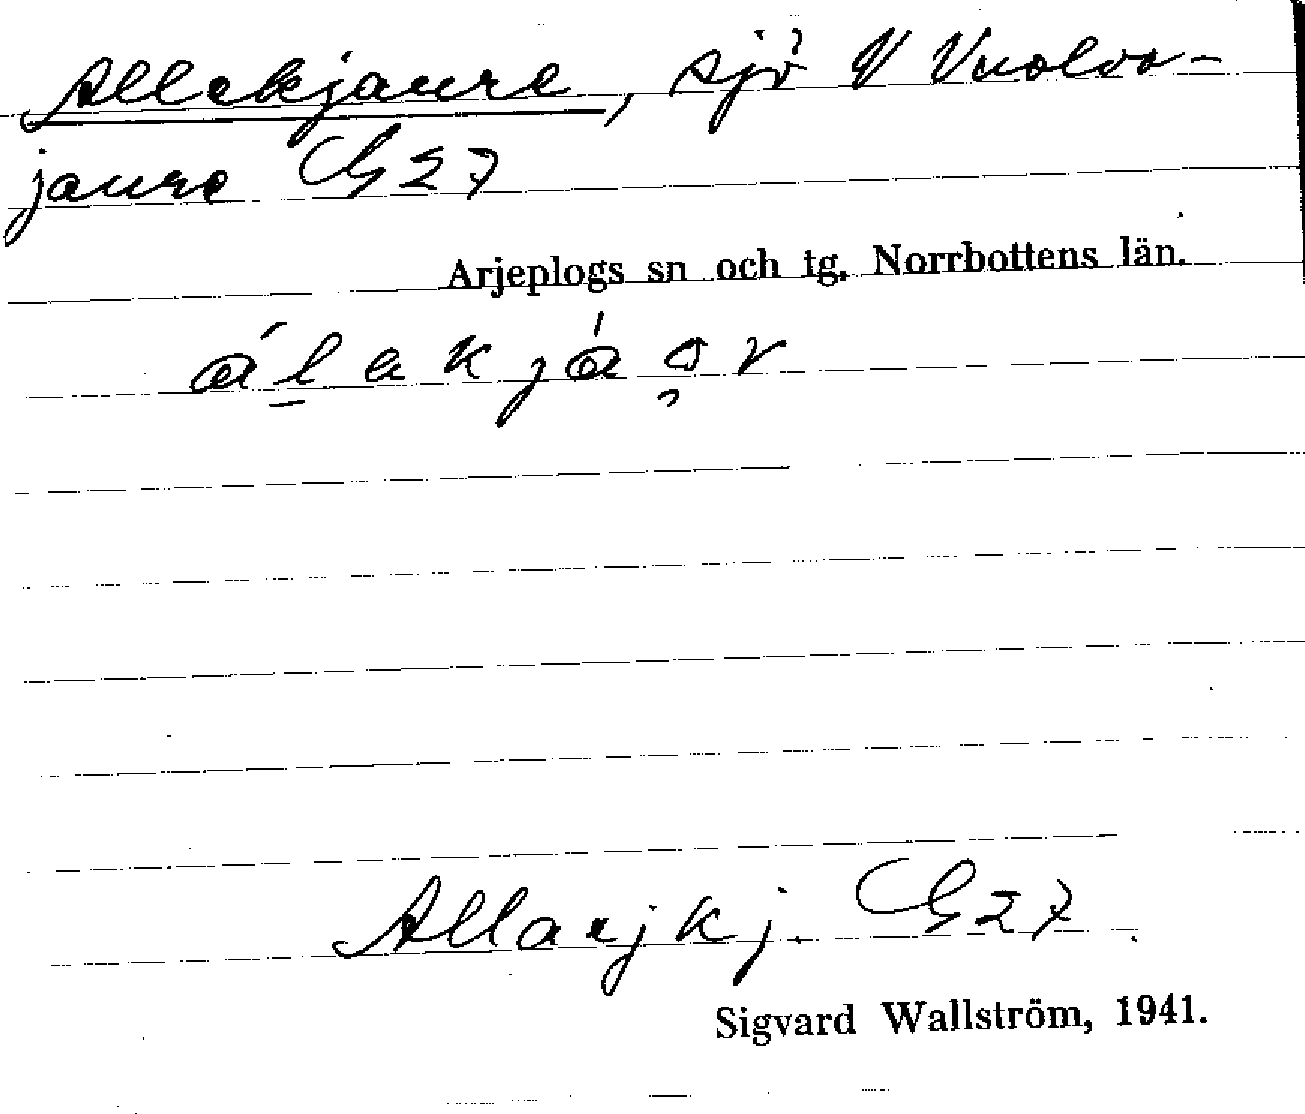 Allekjaure, sjö V Vuolvo-
jaure G27
Arjeplogs sn och tg. Norrbottens län.
ál̲akjáo̡r
Allarjkj. G27
Sigvard Wallström, 1941.